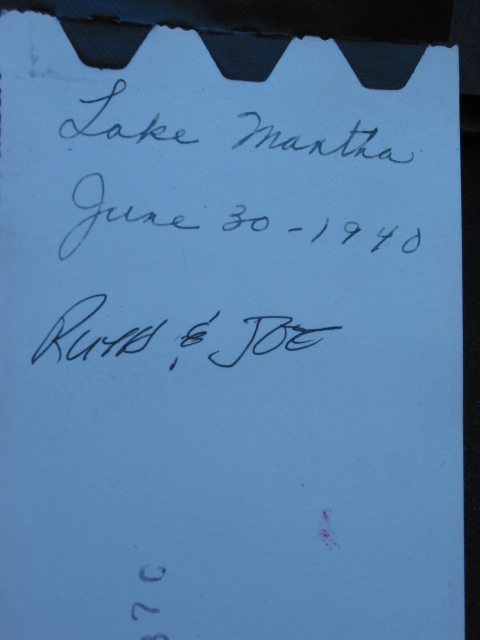 Lake Martha
June 30 - 1940
RUTH & JOE
37C